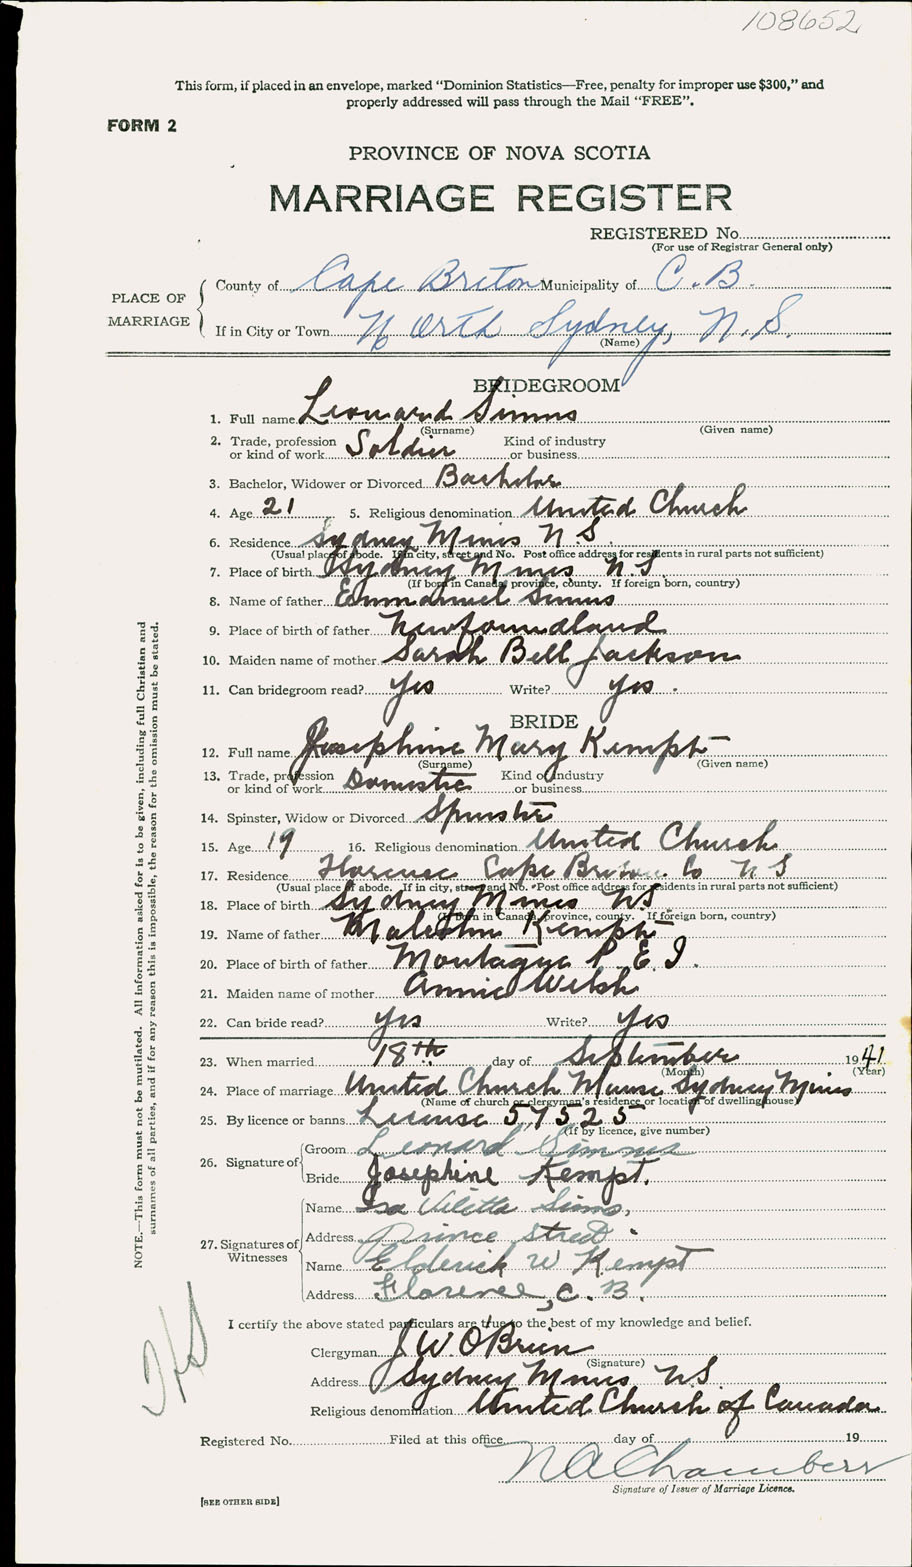 108652
This form, if placed in an envelope, marked "Dominion Statistics—Free, penalty for improper use $300," and
properly addressed will pass through the Mail "FREE".
FORM 2
PROVINCE OF NOVA SCOTIA
MARRIAGE REGISTER
REGISTERED No.
(For use of Registrar General only)
PLACE OF MARRIAGE
County of Cape Breton Municipality of C.B.
If in City or Town North Sydney, N.S.
(Name)
BRIDEGROOM
1. Full name Leonard Simms
(Surname) (Given name)
2. Trade, profession or kind of work Soldier Kind of industry or business
3. Bachelor, Widower or Divorced Bachelor
4. Age 21 5. Religious denomination United Church
6. Residence Sydney Mines N S.
(Usual place of abode. If in city, street and No. Post office address for residents in rural parts not sufficient)
7. Place of birth Sydney Mines N.S.
(If born in Canada, province, county. If foreign born, country)
8. Name of father Emmanuel Simms
9. Place of birth of father Newfoundland
10. Maiden name of mother Sarah Bell Jackson
11. Can bridegroom read? Yes Write? Yes.
BRIDE
12. Full name Josephine Mary Kempt
(Surname) (Given name)
13. Trade, profession or kind of work Domestic Kind of industry or business
14. Spinster, Widow or Divorced Spinster
15. Age 19 16. Religious denomination United Church
17. Residence Florence Cape Breton Co N S
(Usual place of abode. If in city, street and No. Post office address for residents in rural parts not sufficient)
18. Place of birth Sydney Mines NS.
(If born in Canada, province, county. If foreign born, country)
19. Name of father Malcolm Kempt
20. Place of birth of father Montague P.E.I.
21. Maiden name of mother Annie Welsh
22. Can bride read? Yes Write? Yes
23. When married 18th day of September 1941
(Month) (Year)
24. Place of marriage United Church Manse Sydney Mines
(Name of church or clergyman's residence or location of dwelling house)
25. By licence or banns License 57525
(If by licence, give number)
26. Signature of
Groom Leonard Simms
Bride Josephine Kempt.
27. Signatures of Witnesses
Name Viletta Simms,
Address Prince Street.
Name Elderick W Kempt
Address Florence, C. B.
I certify the above stated particulars are true to the best of my knowledge and belief.
Clergyman J W. O'Brien
(Signature)
Address Sydney Mines N.S.
Religious denomination United Church of Canada
Registered No. Filed at this office day of 19
N A Chambers
Signature of Issuer of Marriage Licence.
[SEE OTHER SIDE]
NOTE.—This form must not be mutilated. All information asked for is to be given, including full Christian and
surnames of all parties, and if for any reason this is impossible, the reason for the omission must be stated.